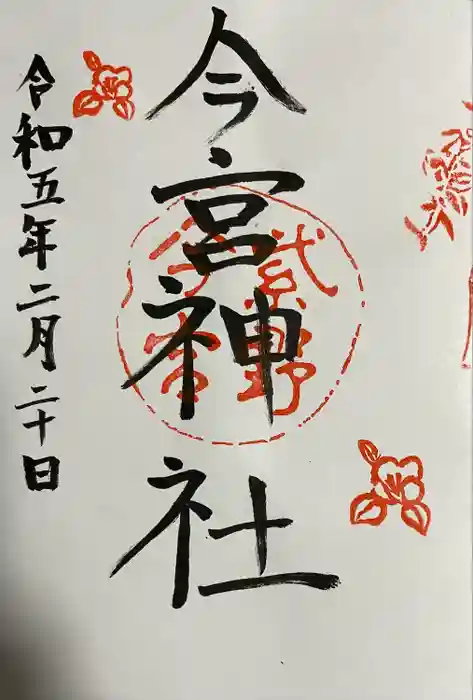 今宮神社
紫野
今宮
令和五年二月二十日